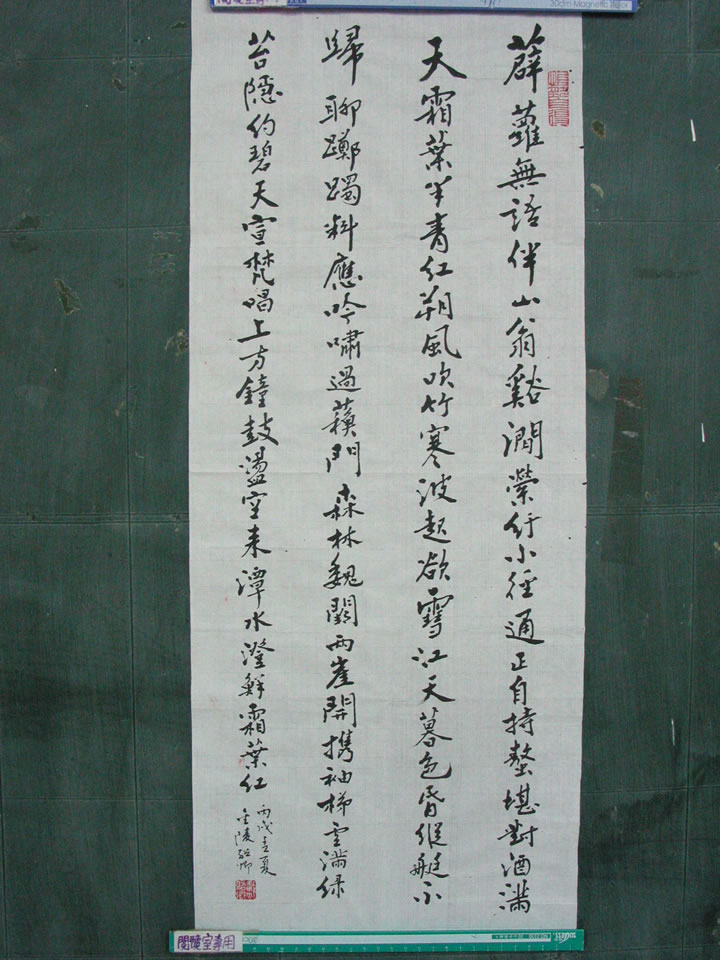 薜蘿無語伴山翁谿澗縈紆小徑通正自持螯堪對酒滿
天霜葉半青紅朔風吹竹寒波起欲雪江天暮色昏維艇不
歸聊躑躅料應吟嘯過蘓門森林魏闕兩崖開携袖梯雲滿綠
苔隱約碧天宣梵唱上方鐘鼓盪空來潭水澄鮮霜葉紅
丙戌 夏
金陵 卿
閱覽室專用
30cm Magnetic Ruler
閱覽室專用